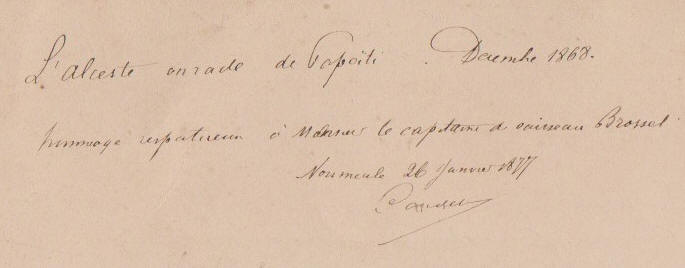 L'alceste en rade de Papéiti. Decembre 1868.
hommage respectueux à Monsieur le capitaine de vaisseau Brosset
Noumea le 26 Janvier 1877